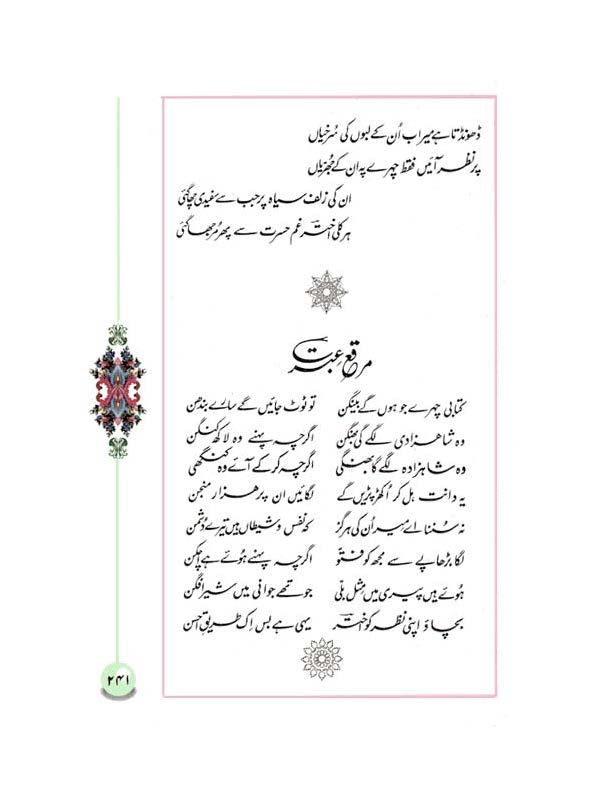 ڈھونڈتا ہے میر اب اُن کے لبوں کی سُرخیاں
پر نظر آئیں فقط چہرے پہ ان کے جُھرّیاں
ان کی زلف سیاہ پر جب سے سفیدی چھا گئی
ہر کلی اختر غم حسرت سے پھر مرجھا گئی
مرقعِ عبرت
کتابی چہرے جو ہوں گے بینگن تو ٹوٹ جائیں گے سارے بندھن
وہ شاہزادی لگے گی بھنگن اگرچہ پہنے وہ لاکھ کنگن
وہ شاہزادہ لگے گا بھنگی اگرچہ کر کے آئے وہ کنگھی
یہ دانت ہل کر اُکھڑ پڑیں گے لگائیں ان پر ہزار منجن
نہ سُننا اے میر اُن کی ہرگز کہ نفس و شیطاں ہیں تیرے دُشمن
لگا بڑھاپے سے مجھ کو فتّو اگرچہ پہنے ہوئے ہے اچکن
ہوئے ہیں پیری میں مثل بلّی جو تھے جوانی میں شیر افگن
بچاؤ اپنی نظر کو اختر یہی ہے بس اِک طریقِ احسن
۲۴۱